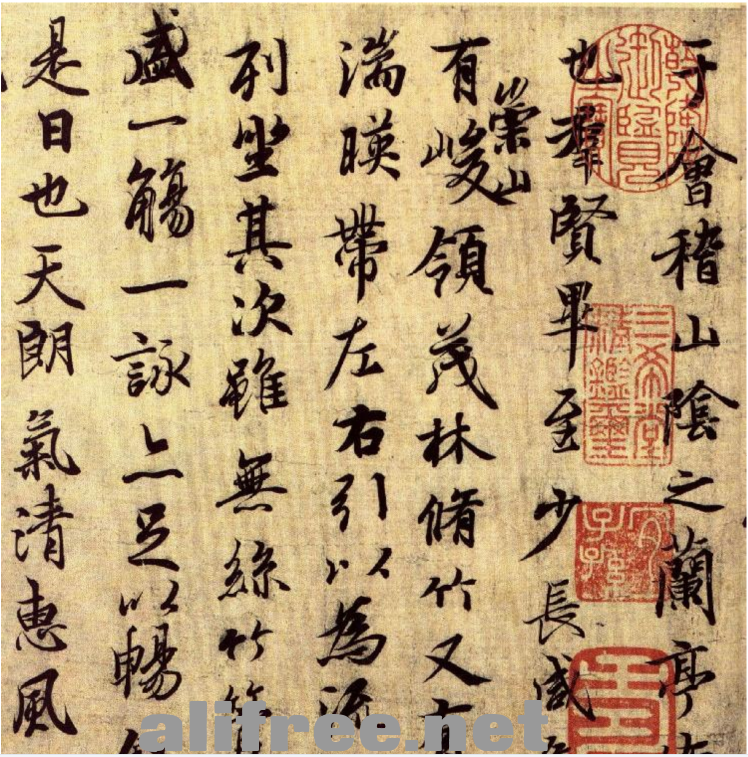 于會稽山陰之蘭亭
也羣賢畢至少長咸
有崇山峻領茂林脩竹又有
湍暎帶左右引以為流
列坐其次雖無絲竹管
盛一觴一詠亦足以暢
是日也天朗氣清惠風
乾隆御覽之寶
三希堂精鑑璽
宜子孫
alifree.net